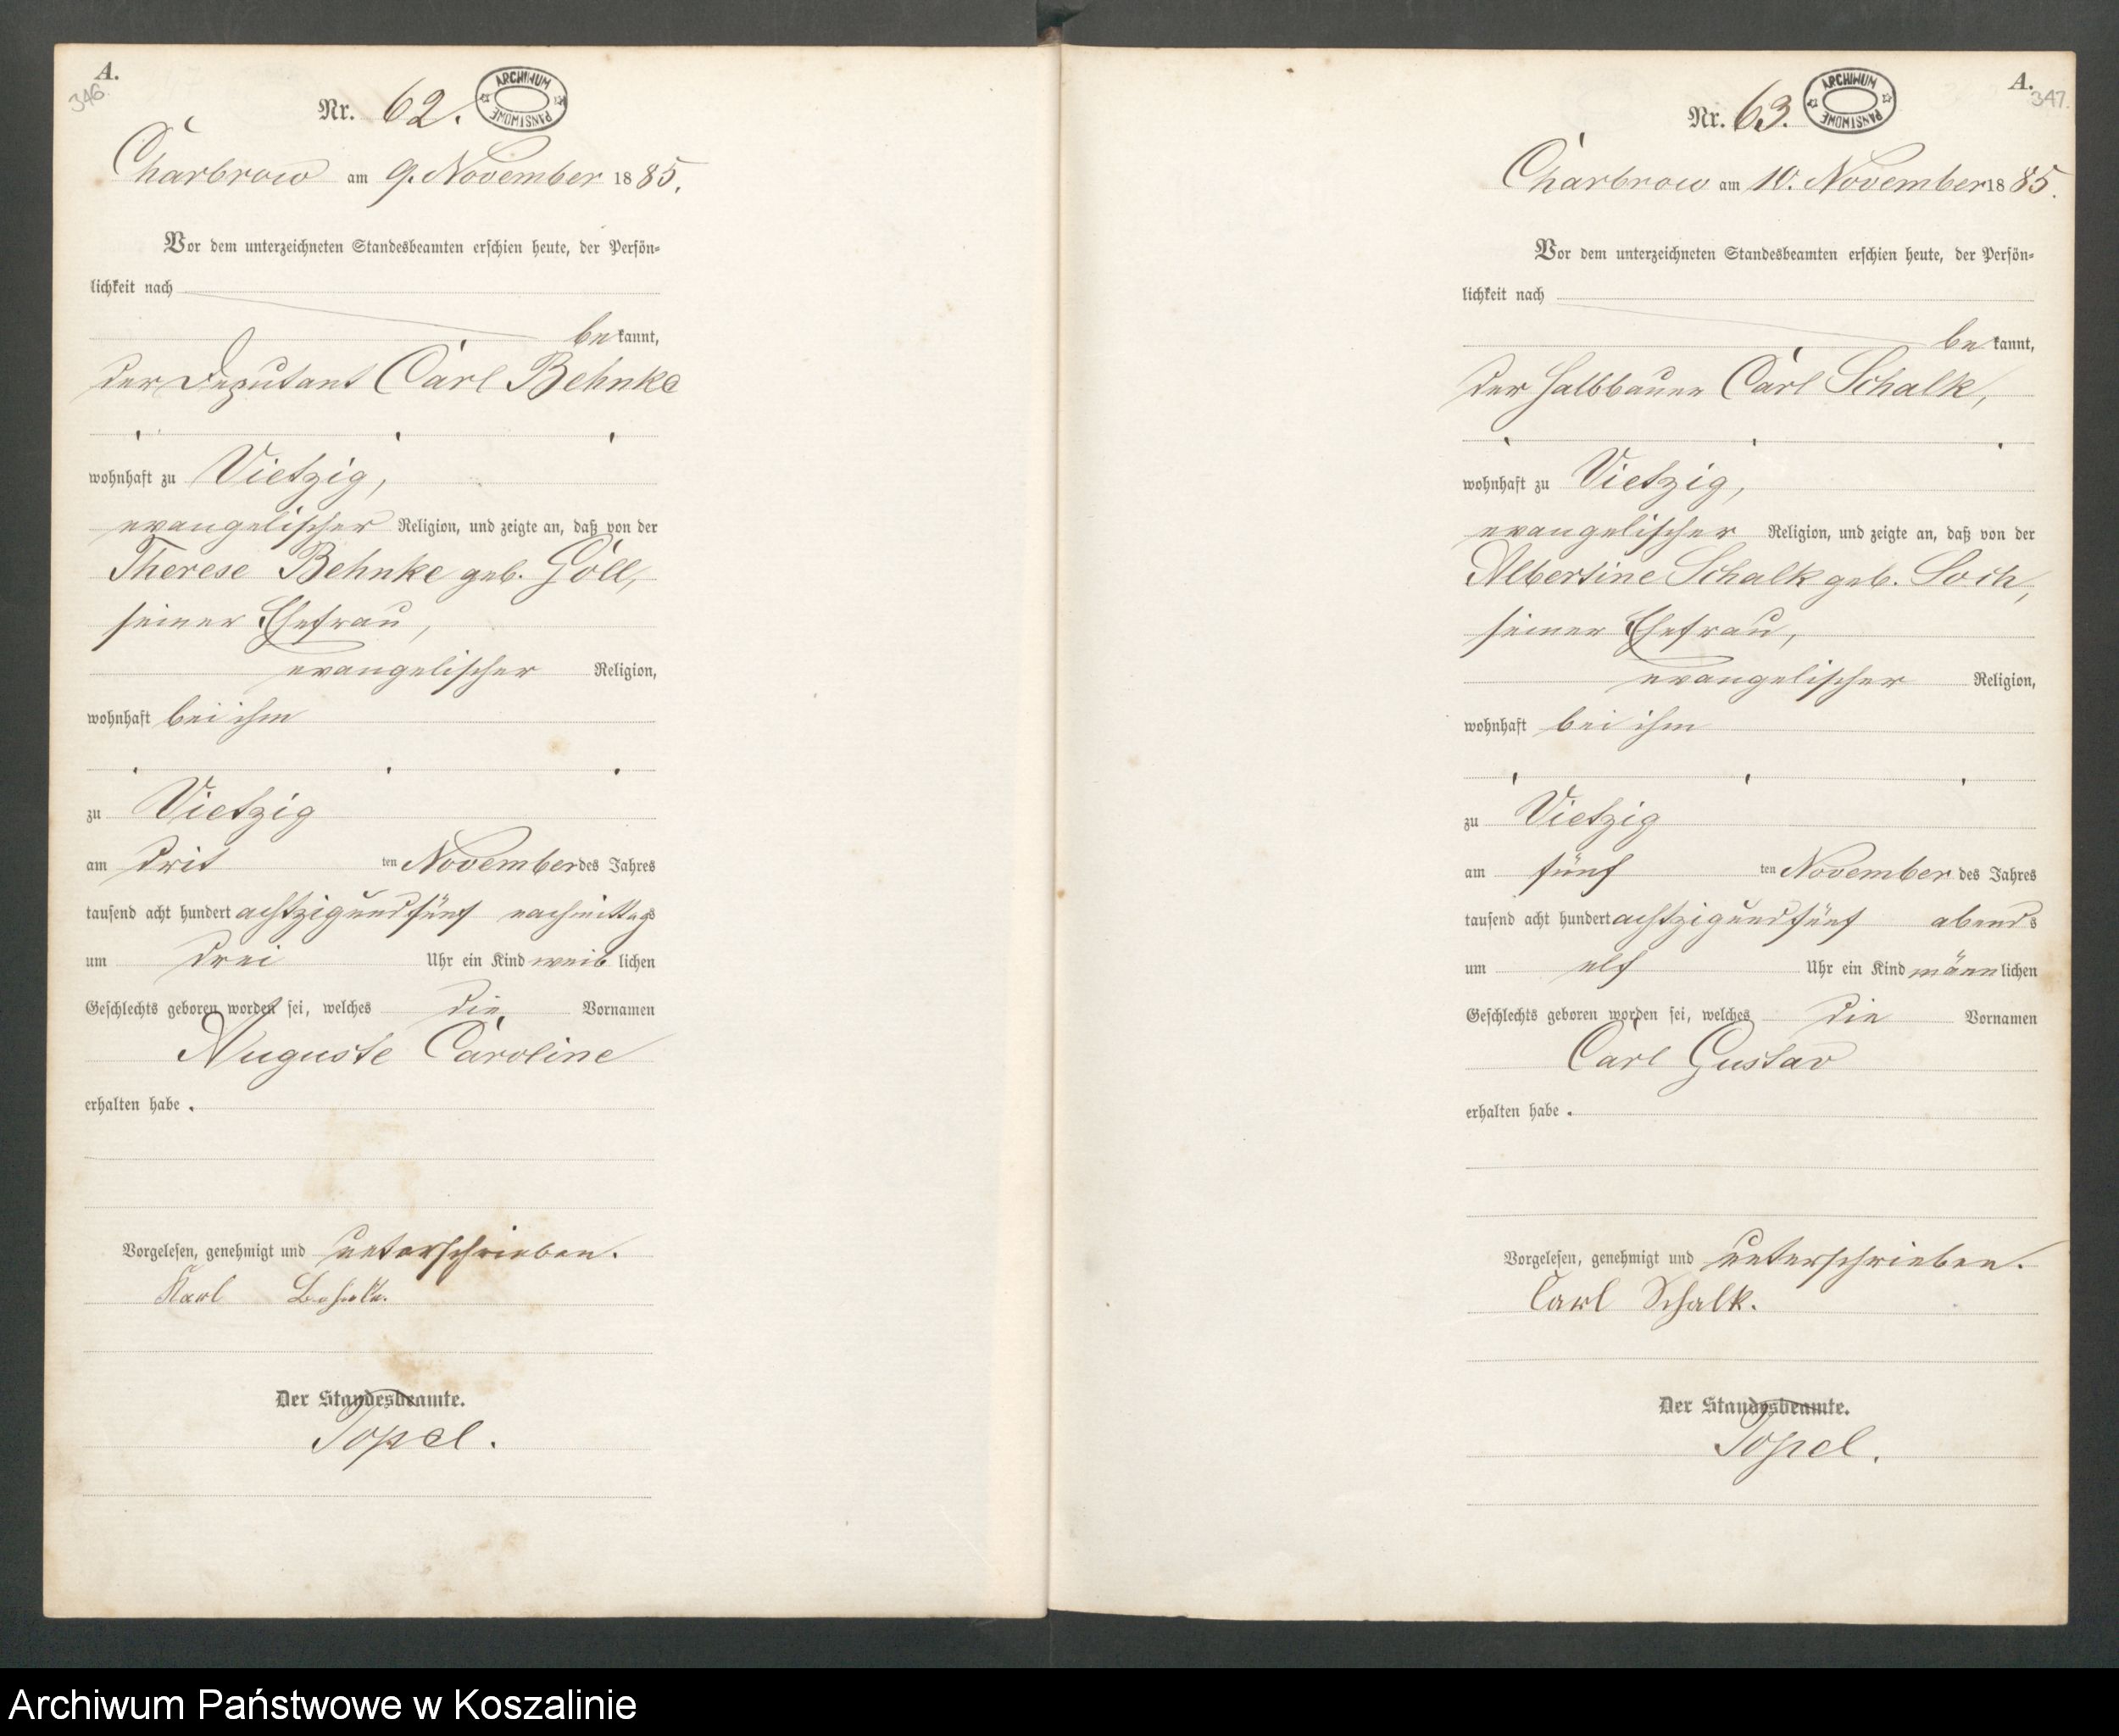 A.
346.
Nr. 62.
ARCHIWUM PAŃSTWOWE
Charbrow am 9. November 1885.
Vor dem unterzeichneten Standesbeamten erschien heute, der Persön-
lichkeit nach
bekannt,
der Deputant Carl Behnke
wohnhaft zu Vietzig,
evangelischer Religion, und zeigte an, daß von der
Therese Behnke geb. Göll,
seiner Ehefrau,
evangelischer Religion,
wohnhaft bei ihm
zu Vietzig
am drit ten November des Jahres
tausend acht hundert achtzig und fünf nachmittags
um drei Uhr ein Kind weiblichen
Geschlechts geboren worden sei, welches die Vornamen
Auguste Caroline
erhalten habe.
Vorgelesen, genehmigt und unterschrieben.
Karl
Der Standesbeamte.
Topel.
A.
347.
Nr. 63.
ARCHIWUM PAŃSTWOWE
Charbrow am 10. November 1885.
Vor dem unterzeichneten Standesbeamten erschien heute, der Persön-
lichkeit nach
bekannt,
der Halbbauer Carl Schalk,
wohnhaft zu Vietzig,
evangelischer Religion, und zeigte an, daß von der
Albertine Schalk geb. Soch,
seiner Ehefrau,
evangelischer Religion,
wohnhaft bei ihm
zu Vietzig
am fünf ten November des Jahres
tausend acht hundert achtzig und fünf abends
um elf Uhr ein Kind männlichen
Geschlechts geboren worden sei, welches die Vornamen
Carl Gustav
erhalten habe.
Vorgelesen, genehmigt und unterschrieben.
Carl Schalk.
Der Standesbeamte.
Topel.
Archiwum Państwowe w Koszalinie